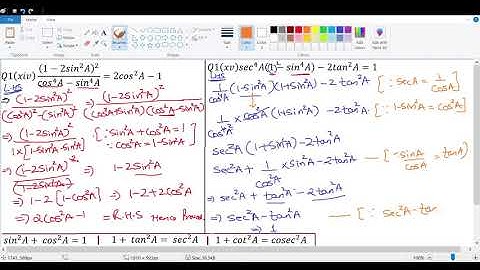 Q1(xiv) (1 − 2sin²A)² / cos⁴A − sin⁴A = 2cos²A − 1
L.H.S
⇒ (1-2Sin²A)² / (Cos²A)²-(Sin²A)² ⇒ (1-2Sin²A)² / (Cos²A+Sin²A)(Cos²A-Sin²A)
⇒ (1-2Sin²A)² / 1×[1-Sin²A-Sin²A] [∵ Sin²A+Cos²A=1
∵ Cos²A=1-Sin²A]
⇒ (1-2Sin²A)² / (1-2Sin²A) ⇒ 1-2Sin²A
⇒ 1-2[1-Cos²A] ⇒ 1-2+2Cos²A
⇒ 2Cos²A-1 ⇒ R.H.S Hence Proved
Q1(xv) sec⁴A(1 − sin⁴A) − 2tan²A = 1
L.H.S
1/Cos⁴A (1-Sin²A)(1+Sin²A) - 2tan²A [∵ SecA = 1/CosA]
1/Cos⁴A × Cos²A (1+Sin²A) - 2tan²A [∵ 1-Sin²A = Cos²A]
Sec²A (1+Sin²A) - 2tan²A
Sec²A + 1/Cos²A × Sin²A - 2tan²A — [∵ SinA/CosA = tanA]
⇒ Sec²A + tan²A - 2tan²A
⇒ Sec²A - tan²A — [∵ Sec²A - tan
⇒ 1
sin²A + cos²A = 1 | 1 + tan²A = sec²A | 1 + cot²A = cosec²A
100%